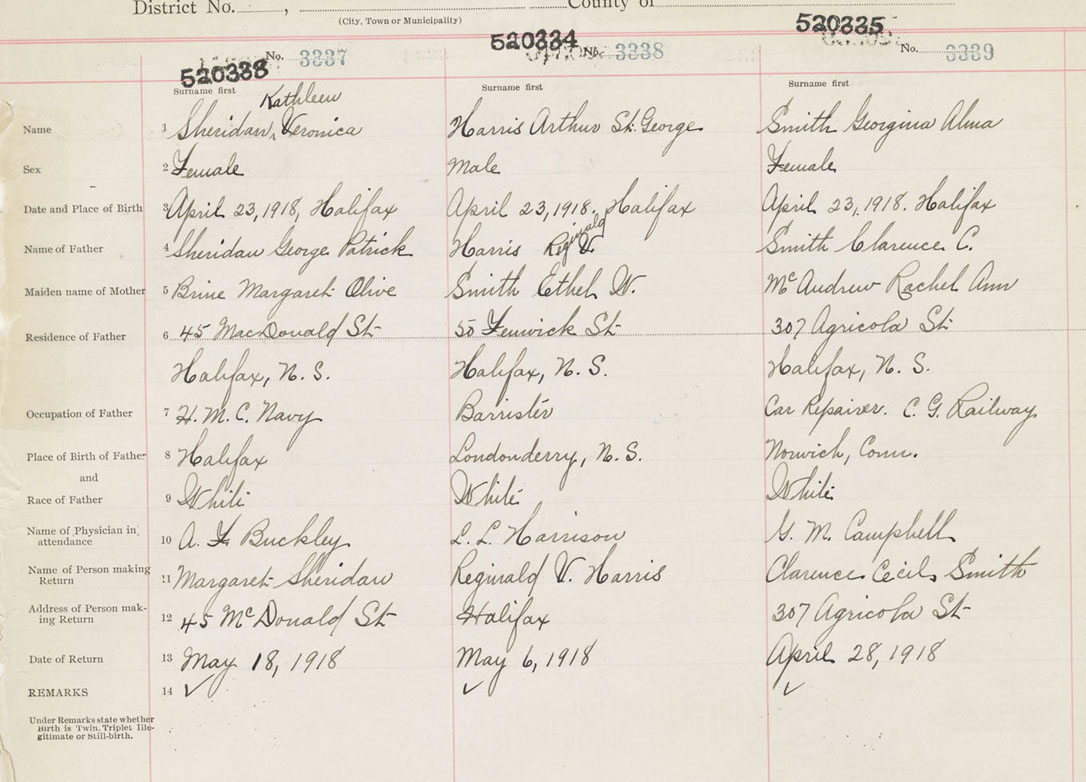 District No. , County of
(City, Town or Municipality)
520338 No. 3337 520334 No. 3338 520335 No. 3339
Surname first Surname first Surname first
Kathleen
Name 1 Sheridan, Veronica Harris Arthur St. George Smith Georgina Alma
Sex 2 Female Male Female
Date and Place of Birth 3 April 23, 1918, Halifax April 23, 1918. Halifax April 23, 1918. Halifax
Reginald
Name of Father 4 Sheridan George Patrick Harris V. Smith Clarence C.
Maiden name of Mother 5 Brine Margaret Olive Smith Ethel W. McAndrew Rachel Ann
Residence of Father 6 45 MacDonald St 50 Fenwick St 307 Agricola St
Halifax, N. S. Halifax, N. S. Halifax, N. S.
Occupation of Father 7 H. M. C. Navy Barrister Car Repairer. C. G. Railway
Place of Birth of Father 8 Halifax Londonderry, N. S. Norwich, Conn.
and
Race of Father 9 White White White
Name of Physician in
attendance 10 A. F Buckley L. L. Harrison G. M. Campbell
Name of Person making
Return 11 Margaret Sheridan Reginald V. Harris Clarence Cecil Smith
Address of Person mak-
ing Return 12 45 McDonald St Halifax 307 Agricola St
Date of Return 13 May 18, 1918 May 6, 1918 April 28, 1918
REMARKS 14 ✓ ✓ ✓
Under Remarks state whether
Birth is Twin. Triplet Ille-
gitimate or Still-birth.